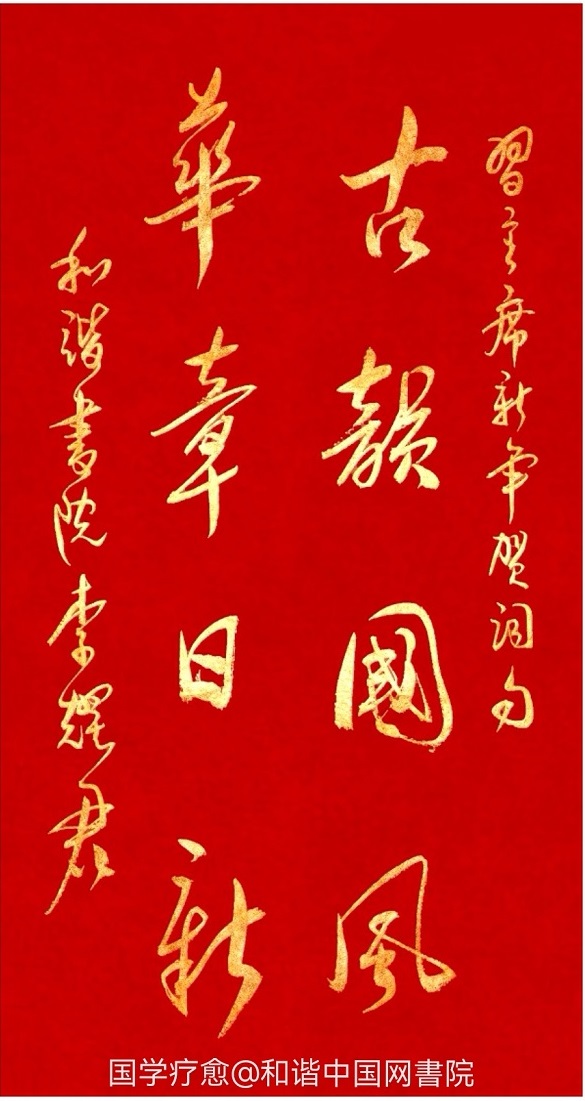 習主席新年贺词句
古韻國風
華章日新
和諧書院李耀君
国学疗愈@和谐中国网書院